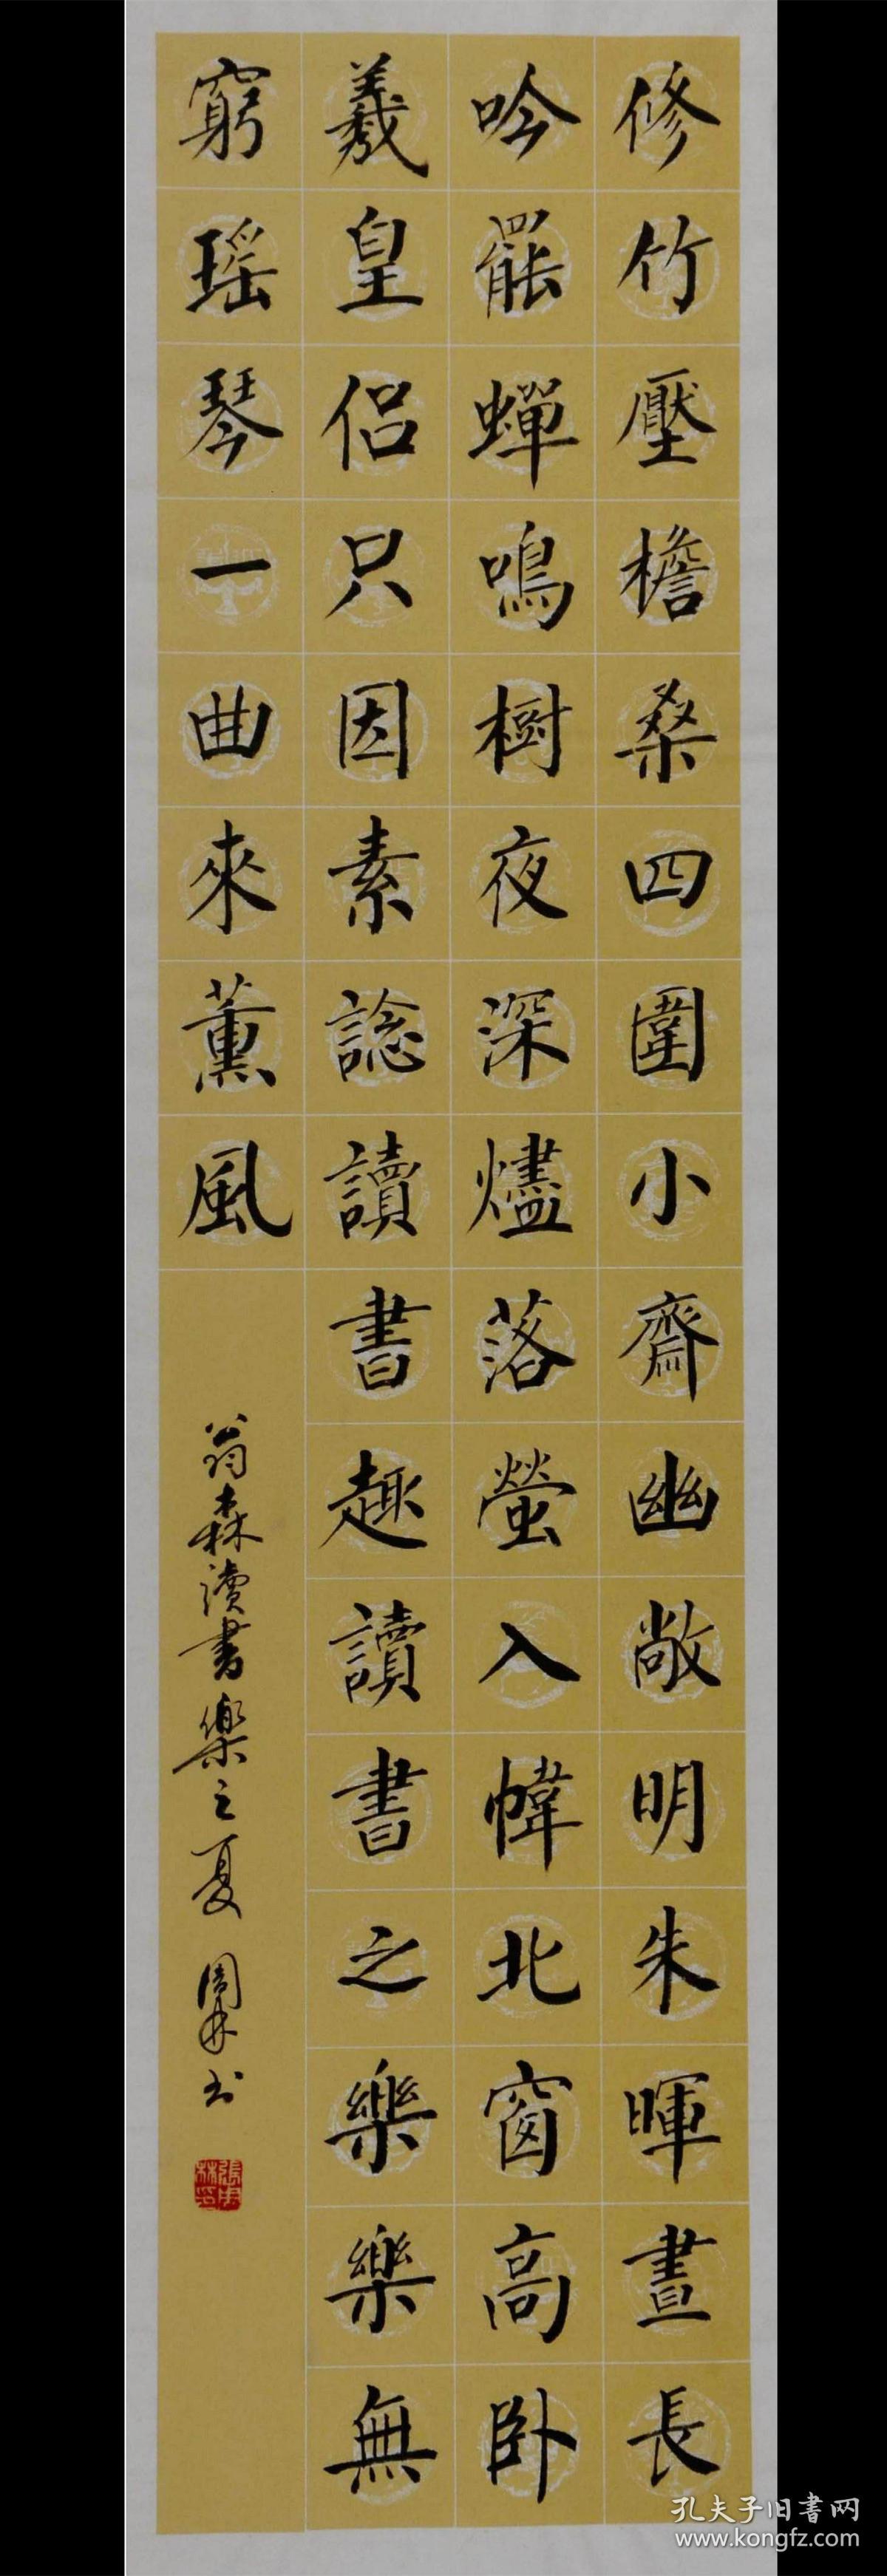 修竹壓檐桑四圍小齋幽敞明朱暉晝長
吟罷蟬鳴樹夜深燼落螢入幃北窗高卧
羲皇侶只因素諗讀書趣讀書之樂樂無
窮瑶琴一曲來薰風
翁森讀書樂之夏
孔夫子旧書网
www.kongfz.com